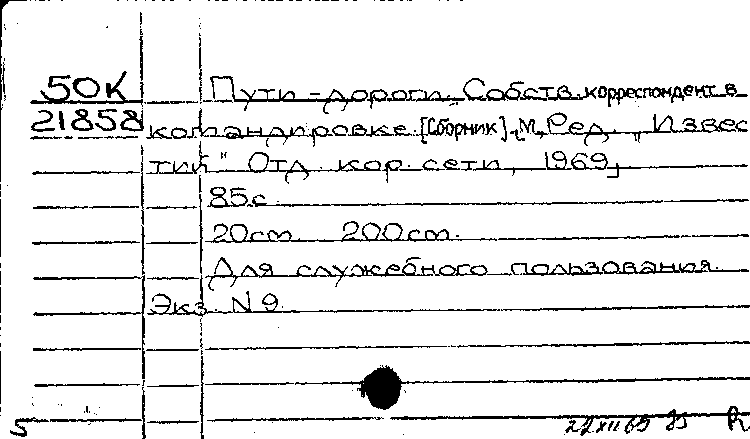 50К Пути-дороги. Собств. корреспондент в
21858 командировке. [Сборник]. М., Ред. „Извес
тий" Отд. кор. сети, 1969,
85с.
20см. 200см.
Для служебного пользования.
Экз. N 9.
5